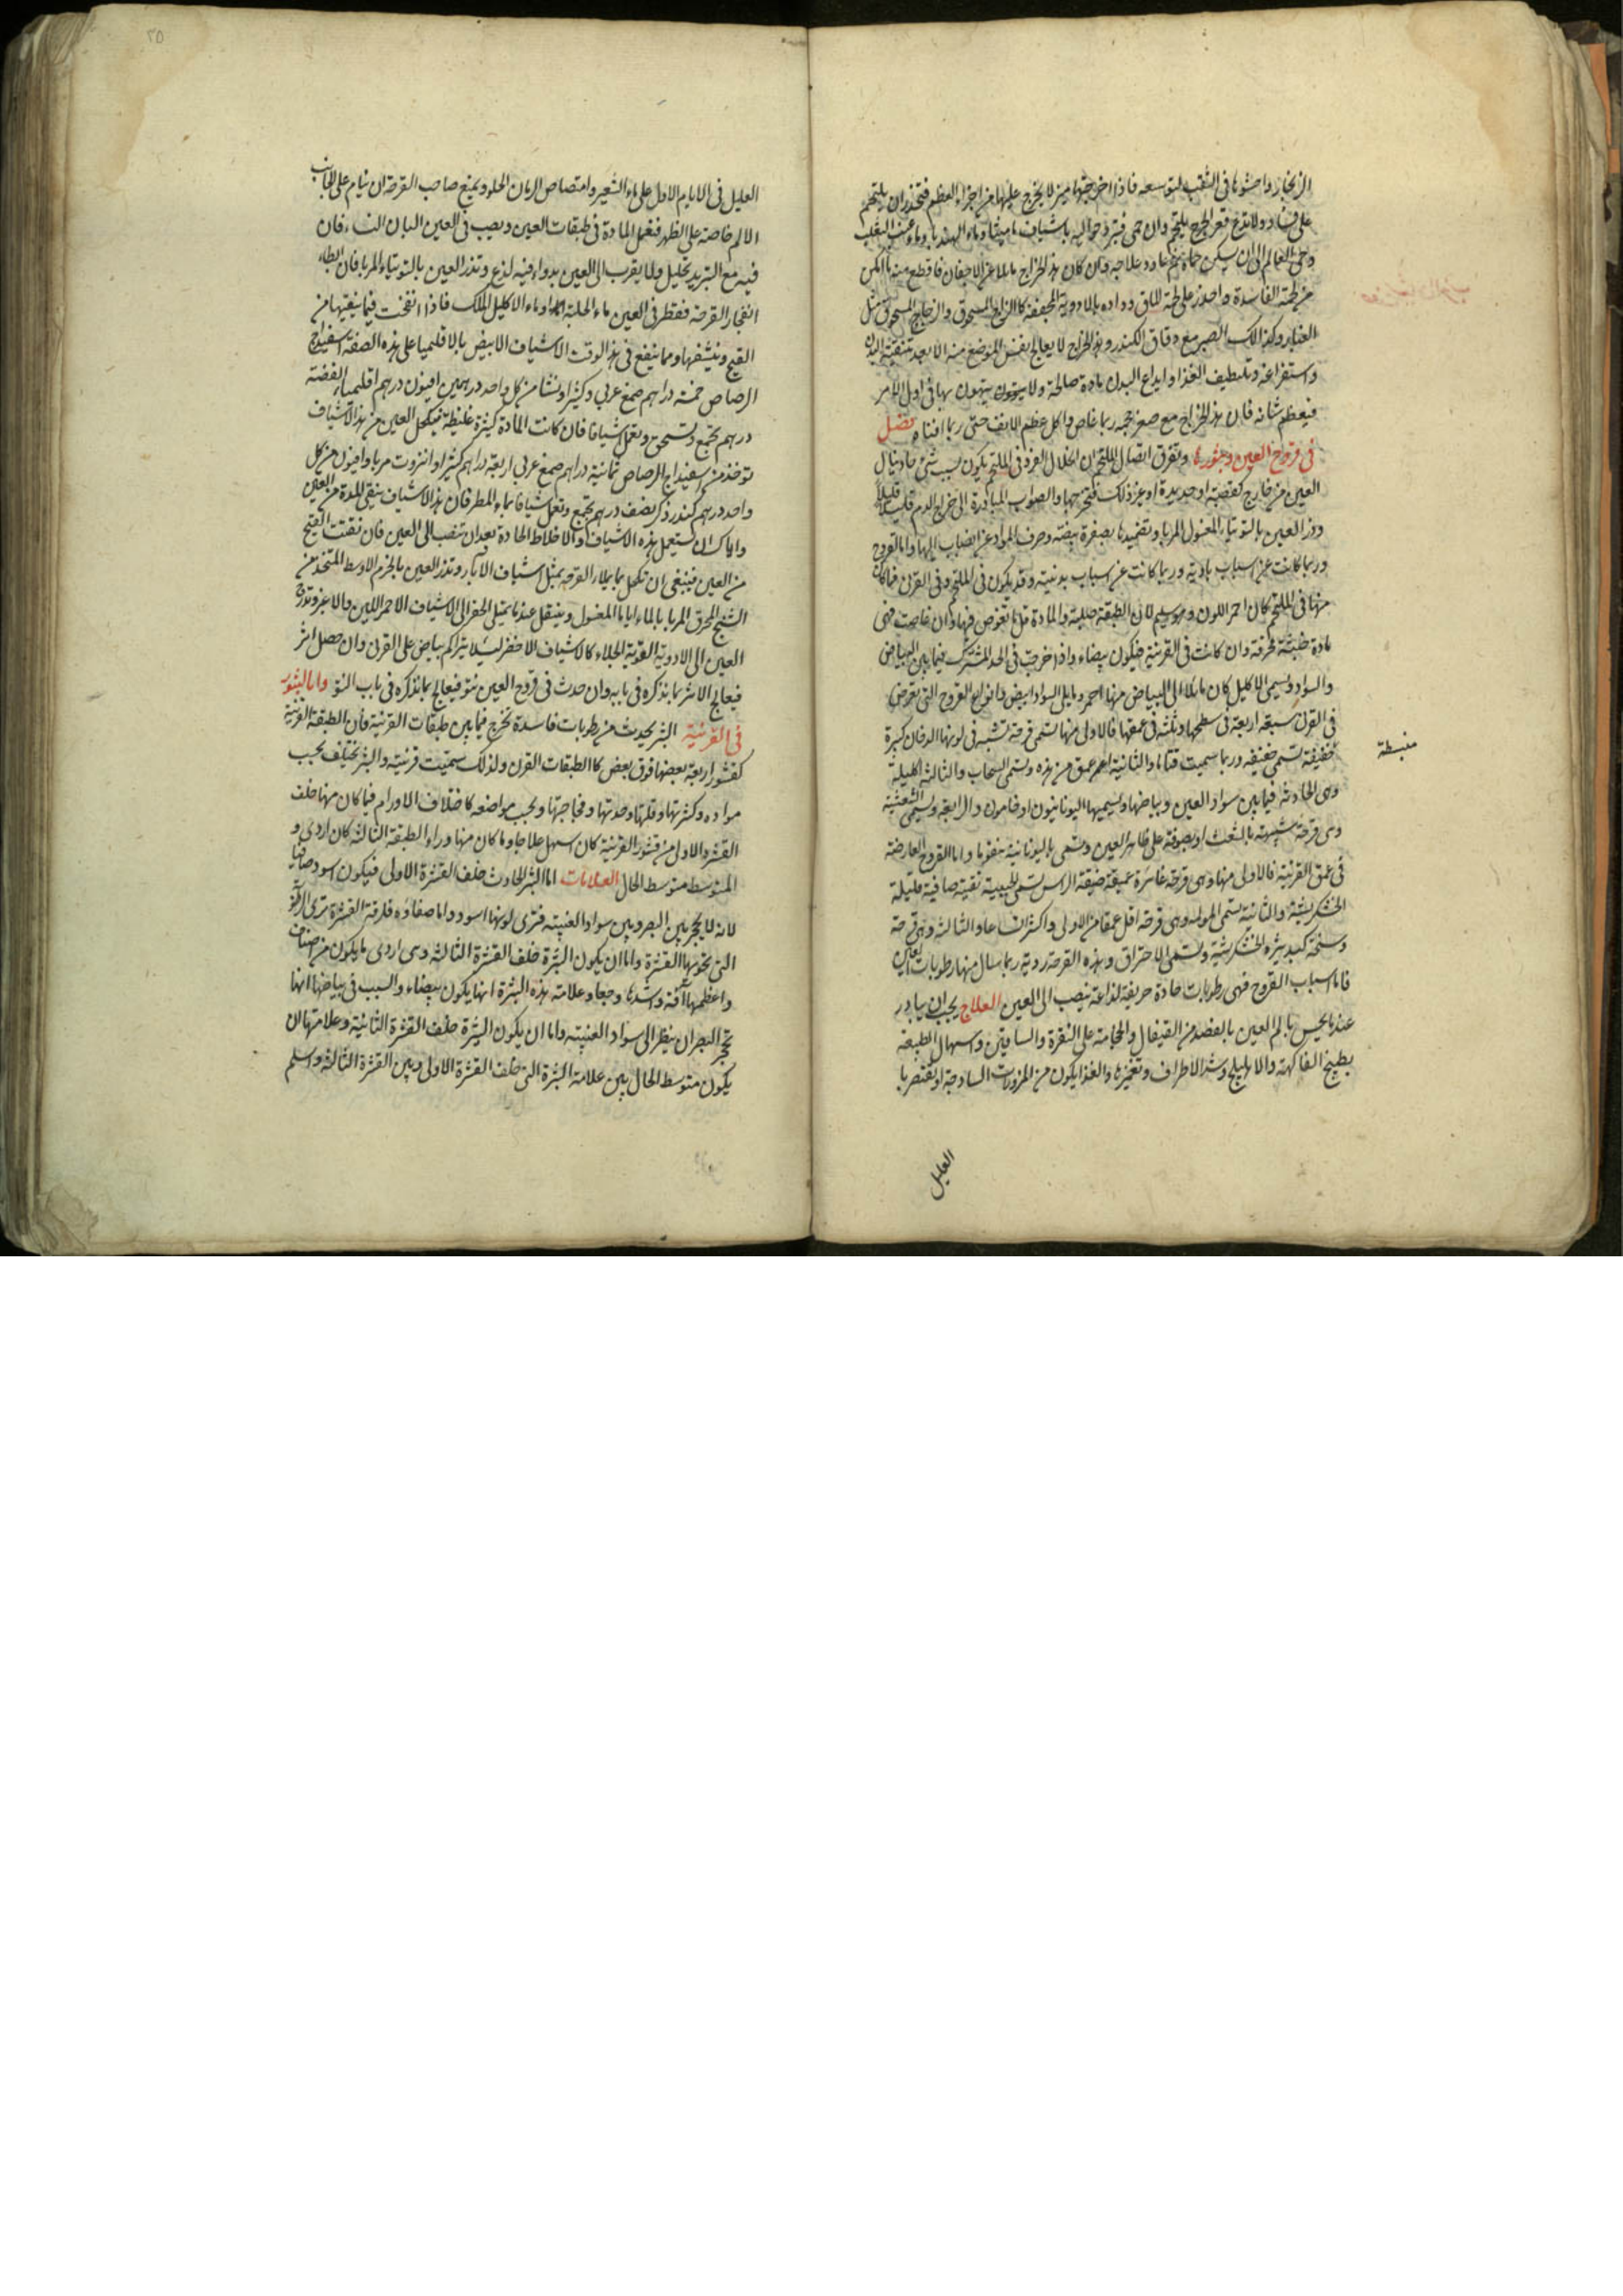 الزنجار واحشوها فى الثقب لتوسعه فاذا اخرجتها ميز لا يخرج عليها من اجزاء العظم فتحذر ان يلتحم
على فساد ولا تدع قعر الجرح يلتحم وان حمى فبرد حواليه باشياف ماميثا وماء الهندبا وماء عنب الثعلب
وحى العالم الى ان يسكن حماه ثم عاود علاجه وان كان هذا الخراج مايلا عن الاجفان فاقطع منه ما امكن
من لحمه الفاسدة واحذر على لحمة الماق وداوه بالادوية المجففة كالزاج المسحوق والزجاج المسحوق مثل
الغبار وكذلك الصبر مع دقاق الكندر وهذا الخراج لا يعالج بنفس الموضع منه الا بعد تنقية البدن
واستفراغه وتلطيف الغذا وايداع البدن مادة صالحة ولا يتهون بها فى اول الامر
فيعظم شانه فان هذا الخراج مع صغر حجمه ربما غاص واكل عظم الانف حتى ربما افناه فصل
فى قروح العين وبثورها وتفرق اتصال الملتحم ان انحلال الفرد فى الملتحم يكون بسبب شئ حاد ينال
العين من خارج كقصبة او حديدة او غير ذلك فتجرحها والصواب المبادرة الى اخراج الدم قليلا قليلا
وذر العين بالتوتياء المغسول المربا وتضميدها بصفرة بيضة وصرف المواد عن انصباب اليها واما القروح
وربما كانت عن اسباب بادية وربما كانت عن اسباب بدنية وقد يكون فى الملتحم وفى القرن فما كان
منها فى الملتحم كان احمر اللون وهو سليم لان الطبقة صلبة والمادة قل ما تغوص فيها وان غاصت فهى
مادة خبيثة محرقة وان كانت فى القرنية فيكون بيضاء واذا خرجت فى الحد المشترك فيما بين البياض
والسواد ويسمى الاكليل كان مايلا الى البياض منها احمر ومايلى السواد ابيض وانواع القروح التى تعرض
فى القرن سبعة اربعة فى سطحها وثلثة فى عمقها فالاولى منها تسمى قرحة تشبه فى لونها الدخان كبيرة
منبسطة
خفيفة تسمى ضعيفة وربما سميت قتاما والثانية اعمق من هذه وتسمى السحاب والثالثة اكليلة
وهى الحادثة فيما بين سواد العين وبياضها ويسميها اليونانيون اوخامون والرابعة ويسمى الشعثية
وهى قرحة شبيهة بالشعث او بصوفة على ظاهر العين وتسمى باليونانية بنقوما واما القروح العارضة
فى عمق القرنية فالاولى منها وهى قرحة غائرة عميقة ضيقة الراس تسمى الجبية نقية صافية قليلة
الخشكريشة والثانية تسمى المولد وهى قرحة اقل عمقا من الاولى واكثر اتساعا والثالثة وهى قرحة
وسخة كبيرة الخشكريشة وتسمى الاحتراق وهذه القرحة ردية ربما سال منها رطوبات العين
فاما اسباب القروح فهى رطوبات حادة حريفة لذاعة ينصب الى العين العلاج يجب ان يبادر
عند ما يحس بالم العين بالفصد من القيفال والحجامة على النقرة والساقين واسهال الطبيعة
بطبيخ الفاكهة والاهليلج وشد الاطراف وتغميزها والغذا يكون من المزورات الساذجة او يقتصر با
العليل
العليل فى الايام الاول على ماء الشعير وامتصاص الرمان الحلو ويمنع صاحب القرحة ان ينام على الجانب
الالم خاصة على الظهر فتغمل المادة فى طبقات العين ويصب فى العين البان النساء فان
فيه مع التبريد تحليل ولا يقرب الى العين بدواء فيه لذع وتذر العين بالتوتياء المربا فان ابطا
انفجار القرحة فقطر فى العين ماء الحلبة او ماء الاكليل الملك فاذا انفتحت فيما ينقيها من
القيح وينشفها ومما ينفع فى هذا الوقت الاشياف الابيض بالاقليميا على هذه الصفة اسفيداج
الرصاص خمسة دراهم صمغ عربى وكثيرا ونشا من كل واحد درهمين افيون درهم اقليمياء الفضة
درهم تجمع وتسحق وتعمل اشيافا فان كانت المادة كثيرة غليظة فيكحل العين من هذا الاشياف
توخذ من اسفيداج الرصاص ثمانية دراهم صمغ عربى اربعة دراهم كثيرا وانزروت مربا وافيون من كل
واحد درهم كندر ذكر نصف درهم تجمع وتعمل اشيافا بماء المطر فان هذا الاشياف ينقى المدة من العين
واياك ان تستعمل هذه الاشياف والاخلاط الحادة بعد ان تنصب الى العين فان نقيت القيح
من العين فينبغى ان تكحل بما يملاء القرحة بمثل اشياف الآبار وتذر العين بالخزم الاوسط المتخذ من
الشنج المحرق المربا بالماء اياما المغسول وينتقل عندما يمتلى الحفر الى الاشياف الاحمر اللين والاغبر وتدرج
العين الى الادوية القوية الجلاء كالاشياف الاخضر ليلا يتراكم بياض على القرن وان حصل اثر
فيعالج الاثر بما نذكره فى بابه وان حدث فى قروح العين نتو فيعالج بما نذكره فى باب النتو واما البثور
فى القرنية البثر يحدث من رطوبات فاسدة تخرج فيما بين طبقات القرنية فان الطبقة القرنية
كقشور اربعة بعضها فوق بعض كالطبقات القرن ولذلك سميت قرنية والبثر يختلف بحسب
مواده وكثرتها وقلتها وحدتها وفجاجتها وبحسب مواضعه كاختلاف الاورام فما كان منها خلف
القشر الاول من قشور القرنية كان اسهل علاجا وما كان منها وراء الطبقة الثالثة كان اردى و
المتوسط متوسط الحال العلامات اما البثر الحادث خلف القشرة الاولى فيكون اسود صافيا
لانه لا يحجز بين البصر وبين سواد العنبية فترى لونها اسود واما صفاؤه فلرقة القشرة
التى تحويها القشرة واما ان يكون البثرة خلف القشرة الثالثة وهى اردى ما يكون من اصناف
واعظمها آفة واشدها وجعا وعلامته هذه البثرة انها يكون بيضاء والسبب فى بياضها انها
تحجز البصر ان ينظر الى سواد العنبية واما ان يكون البثرة خلف القشرة الثانية وعلامتها ان
يكون متوسط الحال بين علامة البثرة التى خلف القشرة الاولى وبين القشرة الثالثة واسلم